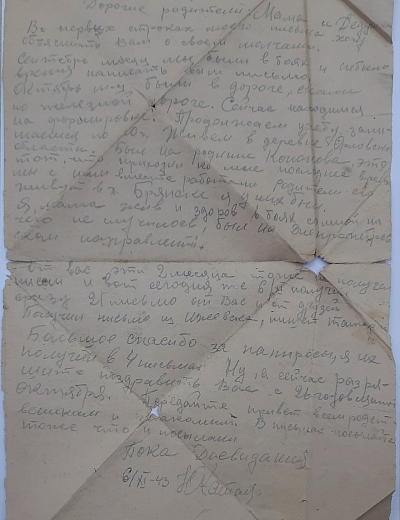 Дорогие родители Мама и
В первых строках моего письма хочу
объяснить Вам о своем молчании.
Сентябрь месяц мы были в боях и небыло
время написать Вам письмо
Октябрь м-ц были в дороге, ехали
по железной дороге. Сейчас находимся
на формировке. Продолжаем учебу,
Живем в деревне Орловской
области. Был на родине Кононова, это
тот, что приходил ко мне последнее время
мы с ним вместе работали Родители его
живут в г. Брянске я у них был.
Я, мама жив и здоров в боях со мной ни
чего не случилось, был на Днепропетров
ском направлении.
От вас эти 2 месяца тоже не получал
писем и вот сегодня же 6/XI получил
сразу 21 письмо от Вас и от друзей
Получил письмо из Ижевска, пишет
Большое спасибо за папиросы я их
получил в 4 письмах. Ну а сейчас разре
шите поздравить Вас с 26 годовщиной
октября. Передайте привет всем родст
венникам и знакомым. В письмах посылайте
тоже что и посылали
Пока Досвидания
6/XI-43